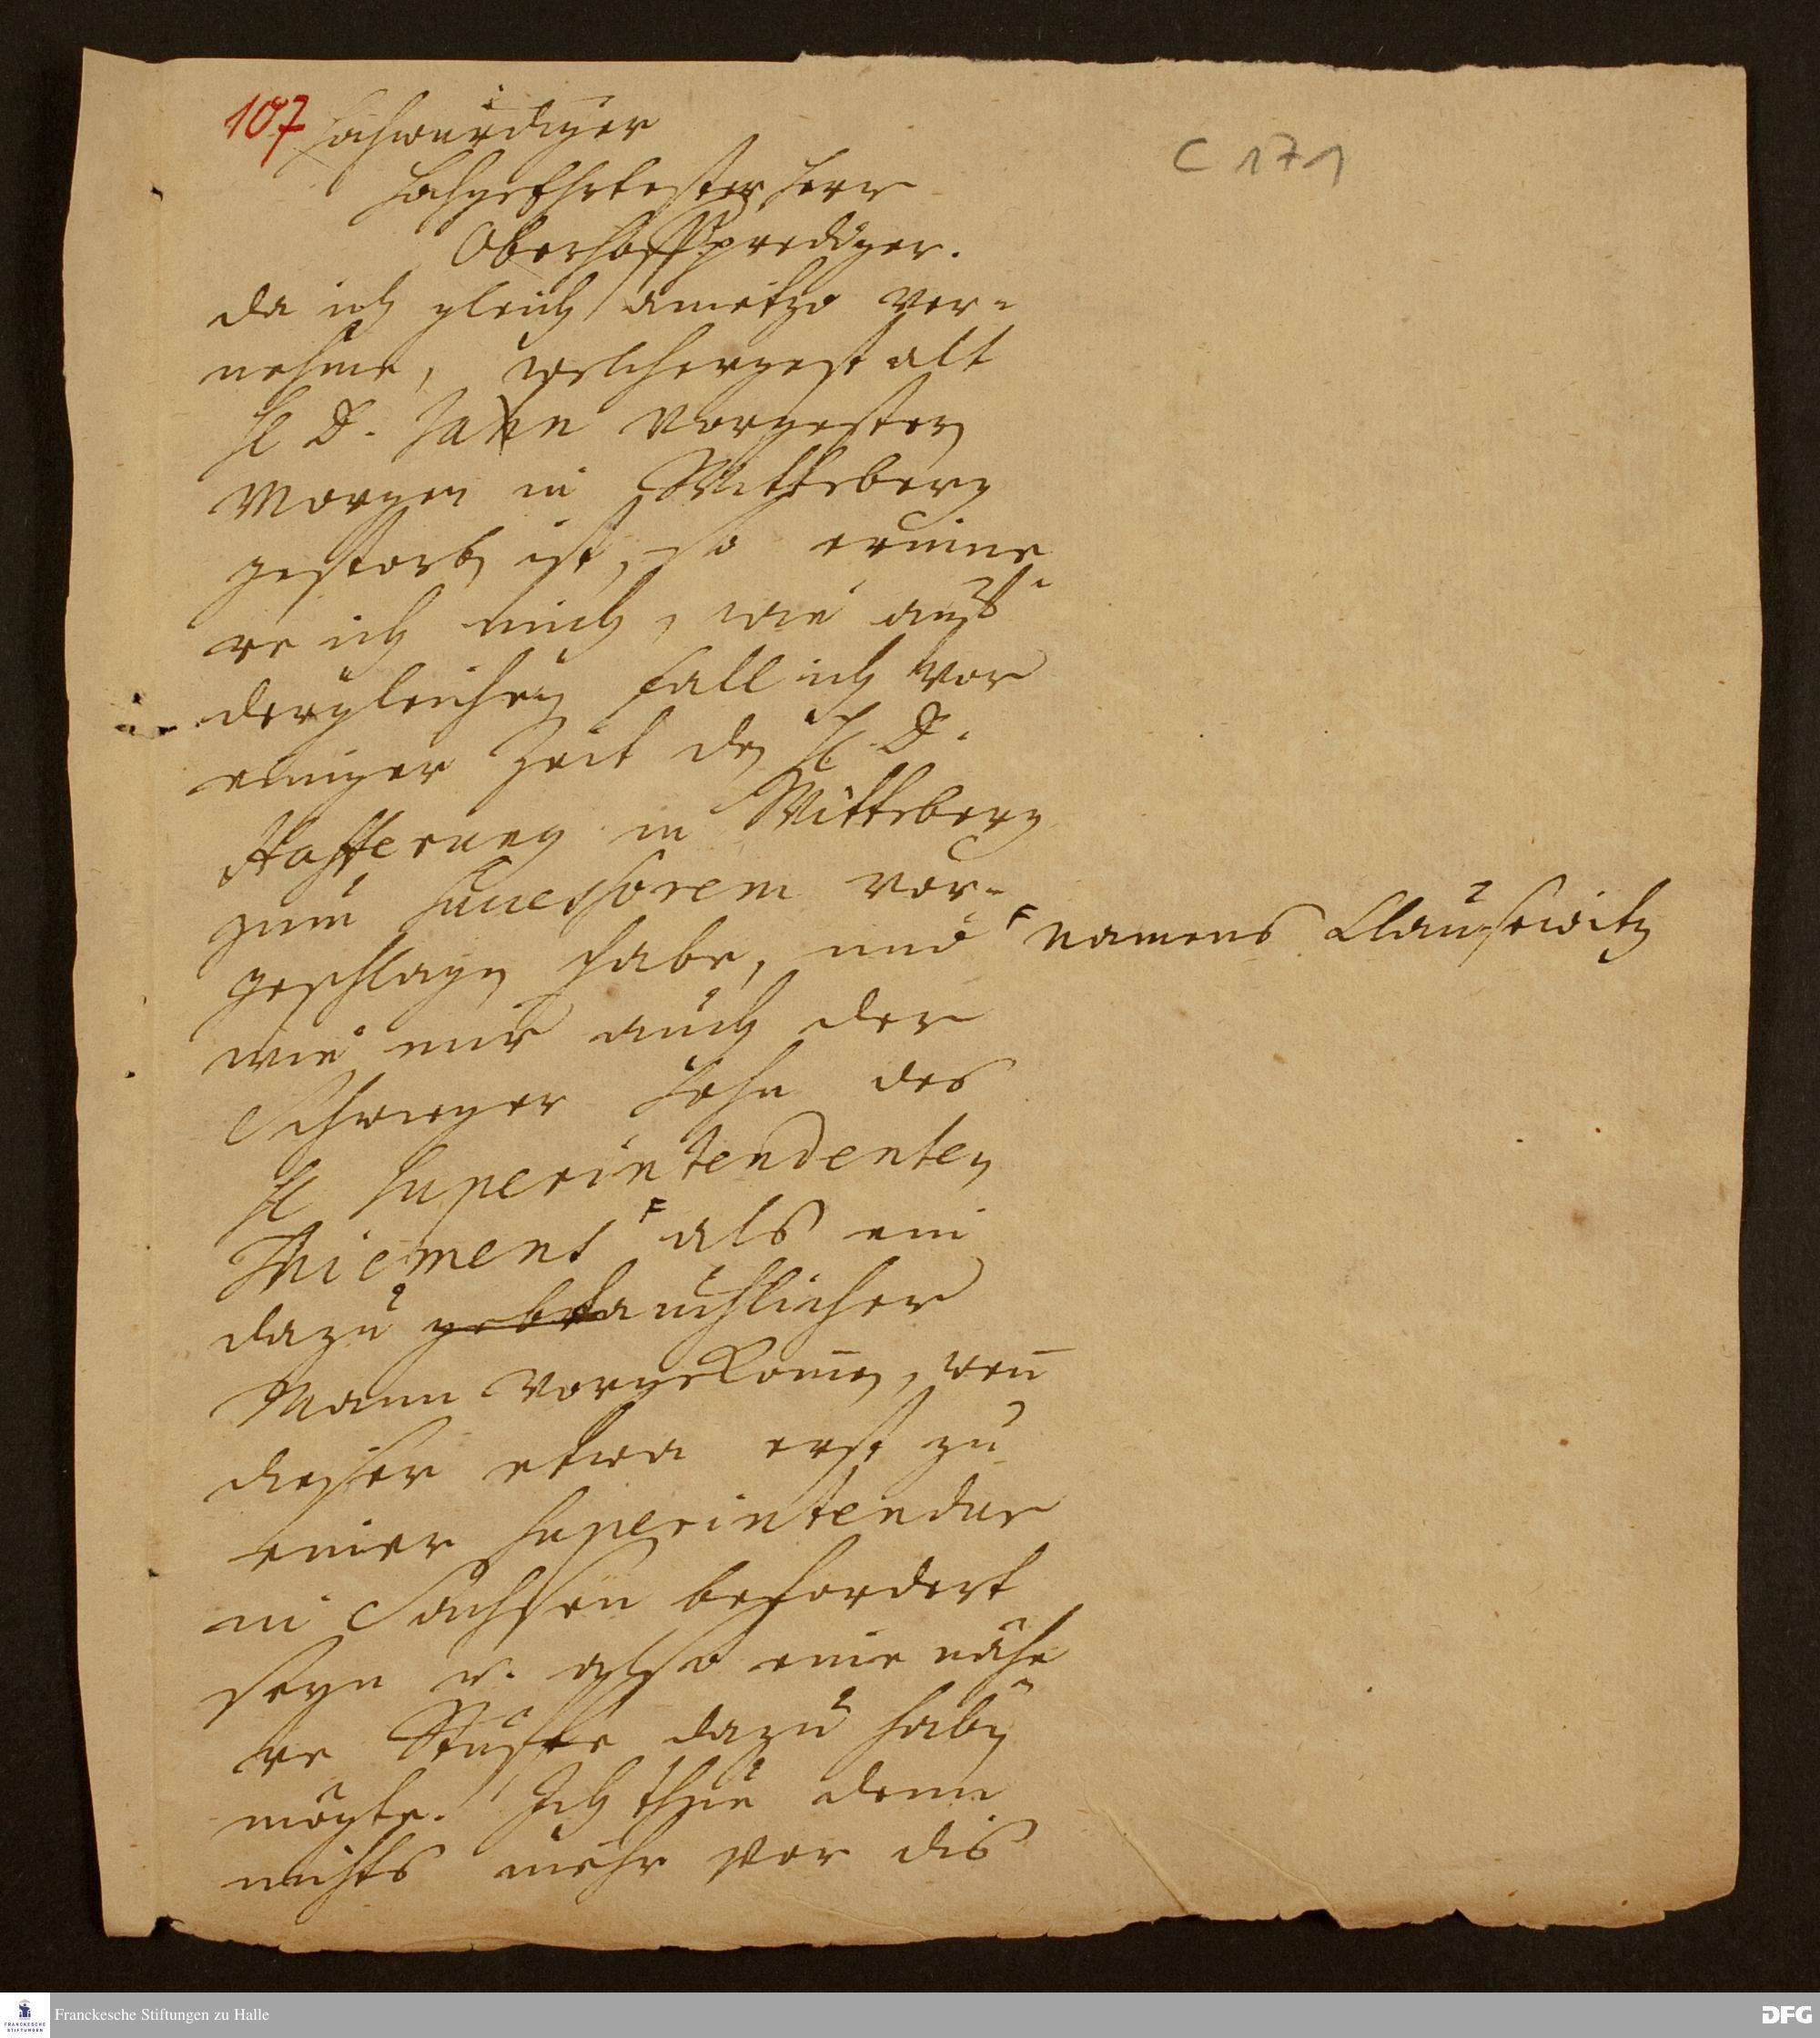 107 Hochwürdiger
C 171
Hochgeehrtester Herr
Oberhoffprediger.
da ich gleich anietzo ver-
nehme, welchergestalt
H D. Jahn vorgestern
Morgen in Witteberg
gestorben ist, so erinne
re ich mich, wie auf
dergleichen Fall ich vor
einiger Zeit den H. D.
Hafferung in Witteberg
zum successorem vor-
geschlagen habe, und
F namens Clausewitz
wie mir auch der
Schwieger Sohn des
H Superintendenten
F als ein
dazu gebrauchlicher
Mann vorgekomen, wen
dieser etwa erst zu
einer Superintendur
in Sachsen befordert
seyn u. also eine nähe
re Stuffe dazu haben
mögte. Ich thue denn
nichts mehr vor dis
Franckesche Stiftungen zu Halle
FRANCKESCHE
STIFTUNGEN
DFG